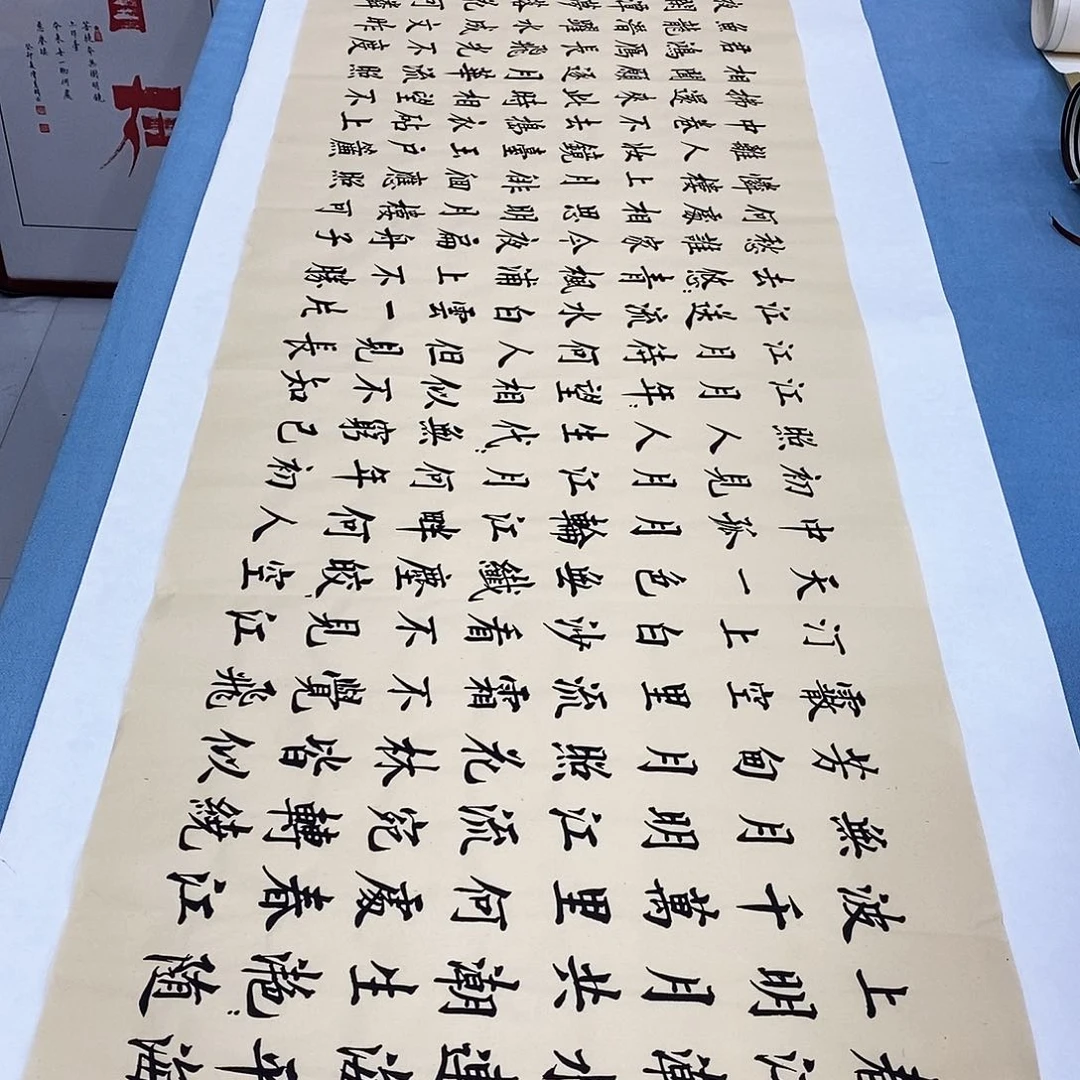 春江潮水連海平海
上明月共潮生灔々隨
波千萬里何處春江
無月明江流宛轉繞
芳甸月照花林皆似
霰空里流霜不覺飛
汀上白沙看不見江
天一色無纖塵皎々空
中孤月輪江畔何人
初見月江月何年初
照人人生代々無窮已
江月年々望相似不知
江月待何人但見長
江送流水白雲一片
去悠々青楓浦上不勝
愁誰家今夜扁舟子
何處相思明月樓可
憐樓上月徘徊應照
離人妝鏡臺玉戶簾
中卷不去搗衣砧上
拂還來此時相望不
相聞願逐月華流照
君鴻雁長飛光不度
魚龍潛躍水成文昨
菩提本無樹明鏡
亦非臺
本來無一物何處
惹塵埃